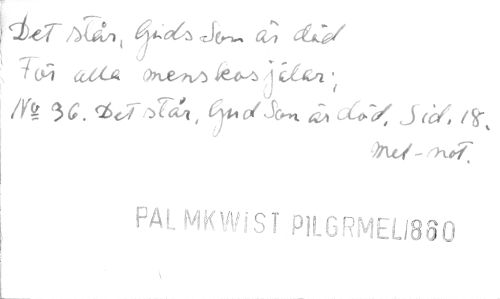 Det står, Guds Son är död
För alla menskosjälar;
No 36. Det står, Gud Son är död. Sid. 18.
Mel-not.
PALMKWIST PILGRMEL1860